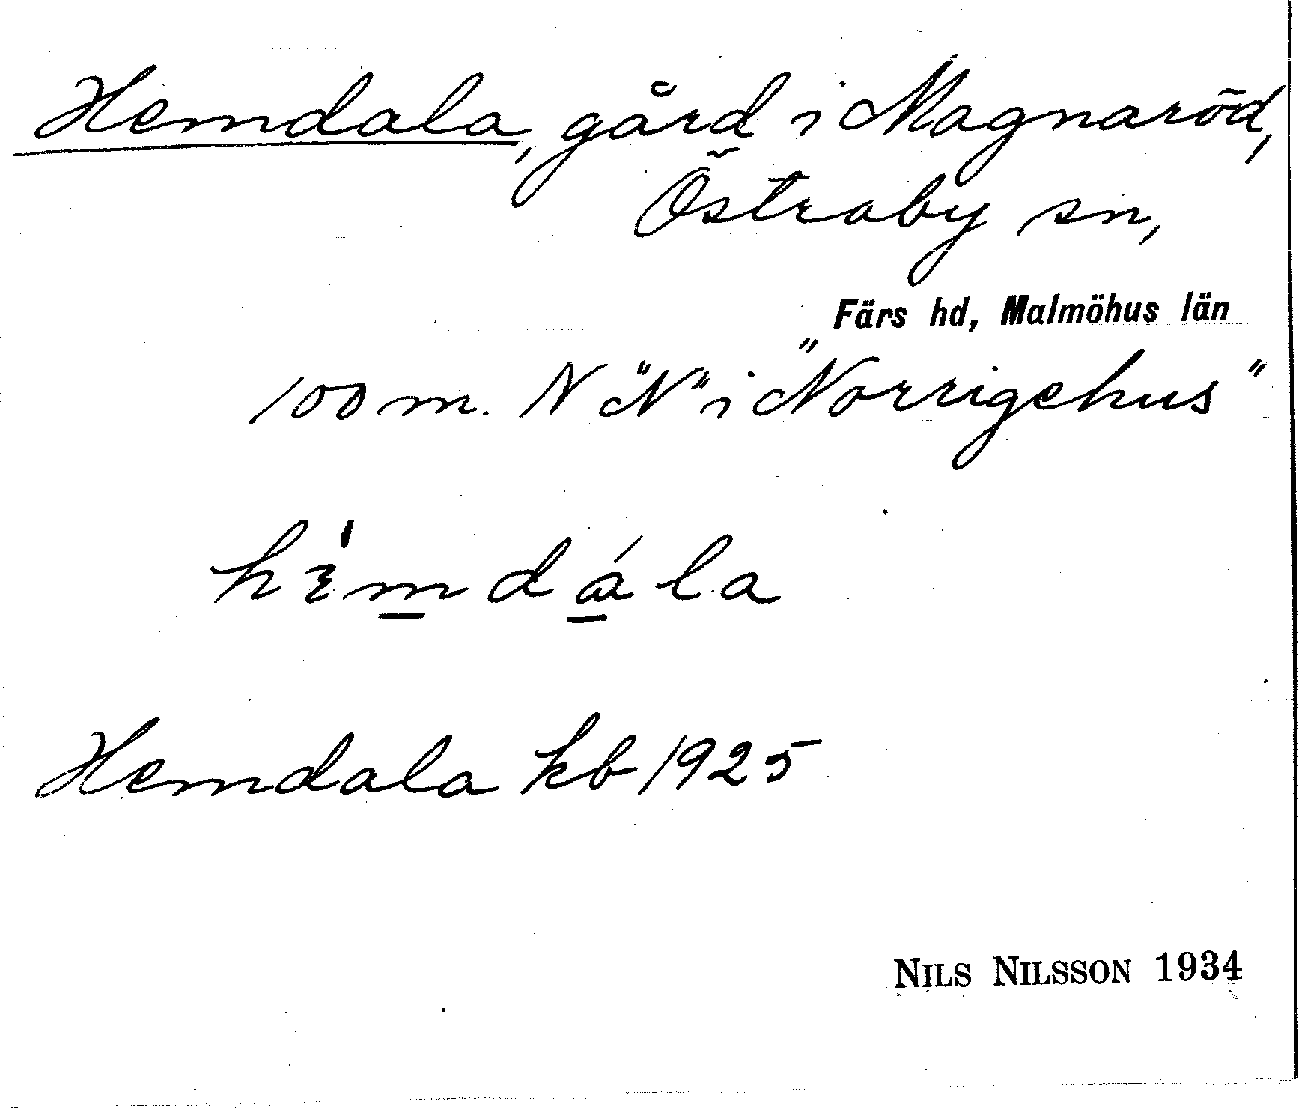 Hemdala, gård i Magnaröd,
Östraby sn,
Färs hd, Malmöhus län
100 m. N "N" i "Norrigehus"
Hemdala kb 1925
NILS NILSSON 1934